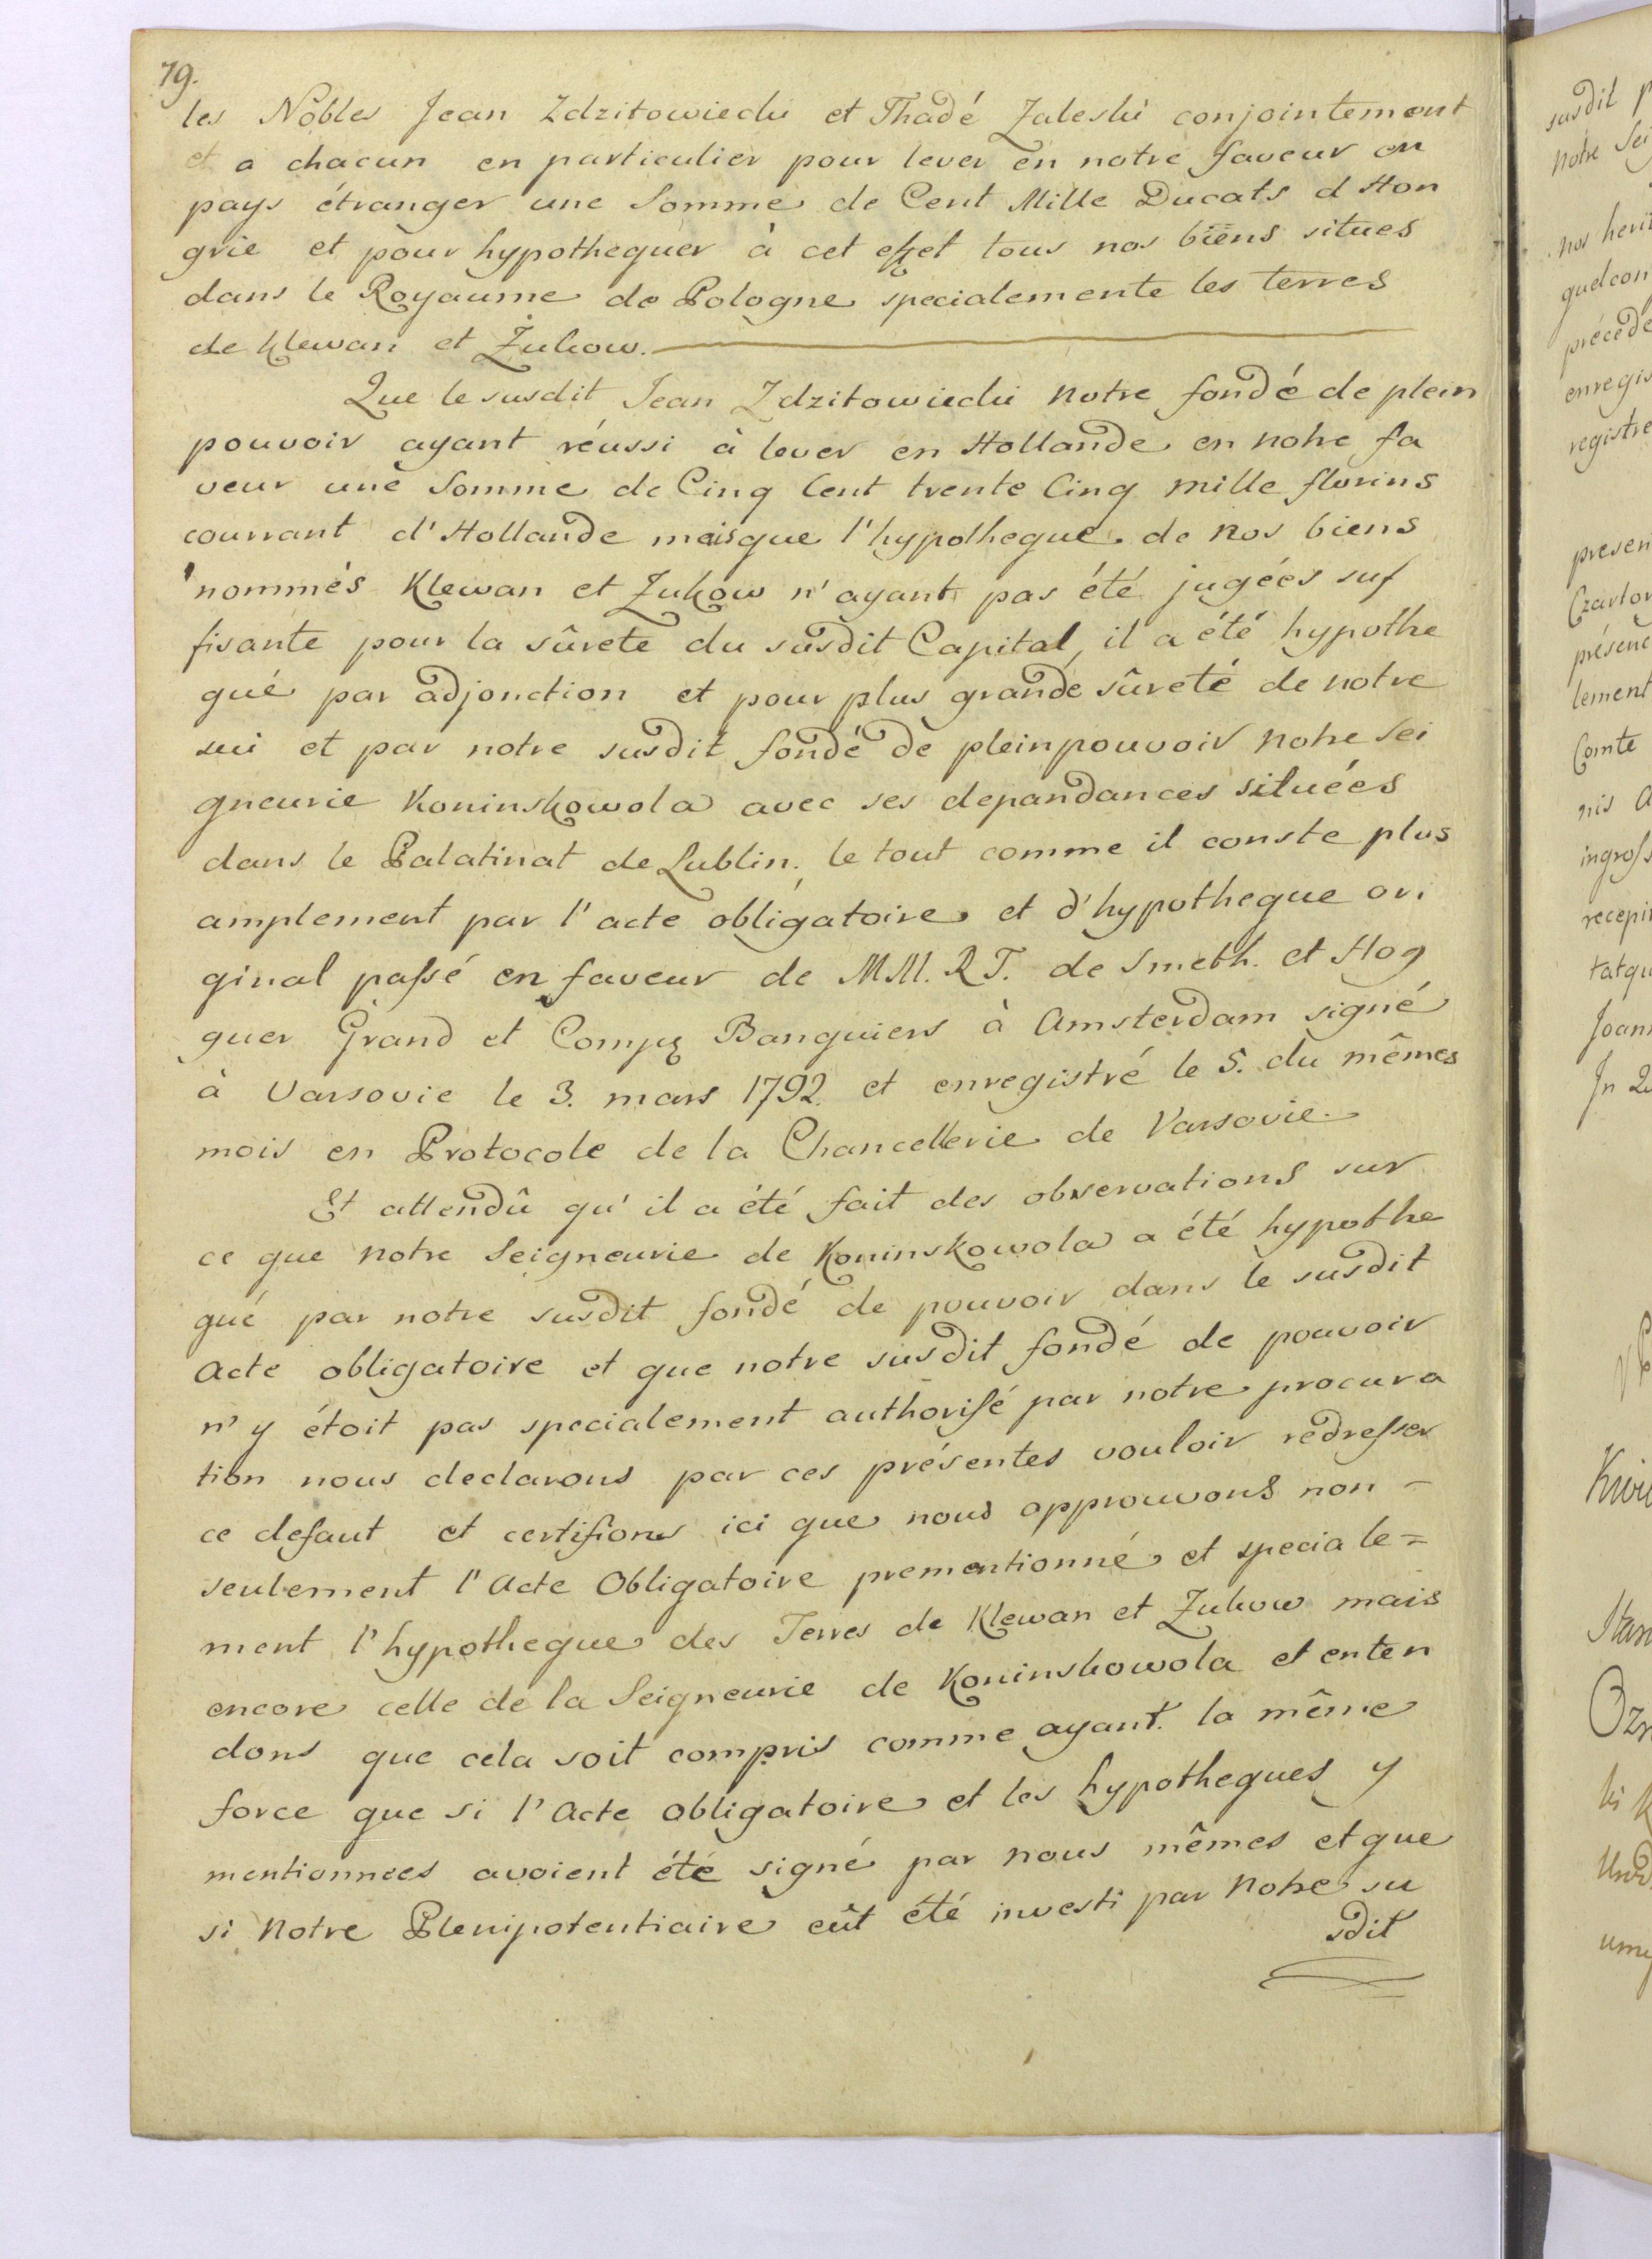 79.
les Nobles Jean Zdzitowiecki et Thadé Zaleski conjointement
et a chacun en particulier pour lever en notre faveur en
pays étranger une Somme de Cent Mille Ducats d Hon
grie et pour hypothequer à cet effet tous nos biens situes
dans le Royaume de Pologne specialemente les terres
de Klewan et Żukow.
Que le susdit Jean Zdzitowiecki notre fondé de plein
pouvoir ayant réussi à lever en Hollande en notre fa
veur une Somme de Cinq Cent trente Cinq mille florins
courrant d'Hollande maisque l'hypotheque de nos biens
nommés Klewan et Zukow n'ayant pas été jugées suf
fisante pour la sûrete du susdit Capital, il a été hypothe
qué par adjonction et pour plus grande sûreté de notre
sui et par notre susdit fondé de pleinpouvoir notre Sei
gneurie Koninskowola avec ses depandances situées
dans le Palatinat de Lublin, le tout comme il conste plus
amplement par l'acte obligatoire et d'hypotheque ori
ginal passé en faveur de MM. R T. de Smeth. et Hog
guer Grand et Comp. Banquiers à Amsterdam signé
à Varsovie le 3. mars 1792. et enregistré le 5. du mêmes
mois en Protocole de la Chancellerie de Varsovie.
Et attendû qu'il a été fait des observations sur
ce que notre Seigneurie de Koninskowola a été hypothe
qué par notre susdit fondé de pouvoir dans le susdit
Acte obligatoire et que notre susdit fondé de pouvoir
n'y étoit pas specialement authorisé par notre procura
tion nous declarons par ces présentes vouloir redresser
ce defaut et certifions ici que nous approuvons non -
seulement l'Acte Obligatoire prementionné et speciale=
ment l'hypotheque des Terres de Klewan et Zukow mais
encore celle de la Seigneurie de Koninskowola et enten
dons que cela soit compris comme ayant la même
force que si l'Acte obligatoire et les hypotheques y
mentionnees avoient été signé par nous mêmes et que
si notre Plenipotentiaire eût été investi par notre su
sdit
susdit
notre Sei
nos herit
quelcon
précede
enregis
registre
presen
Czartor
présenc
lement
Comte
nis
ingross
recepi
tatqu
Joan
In